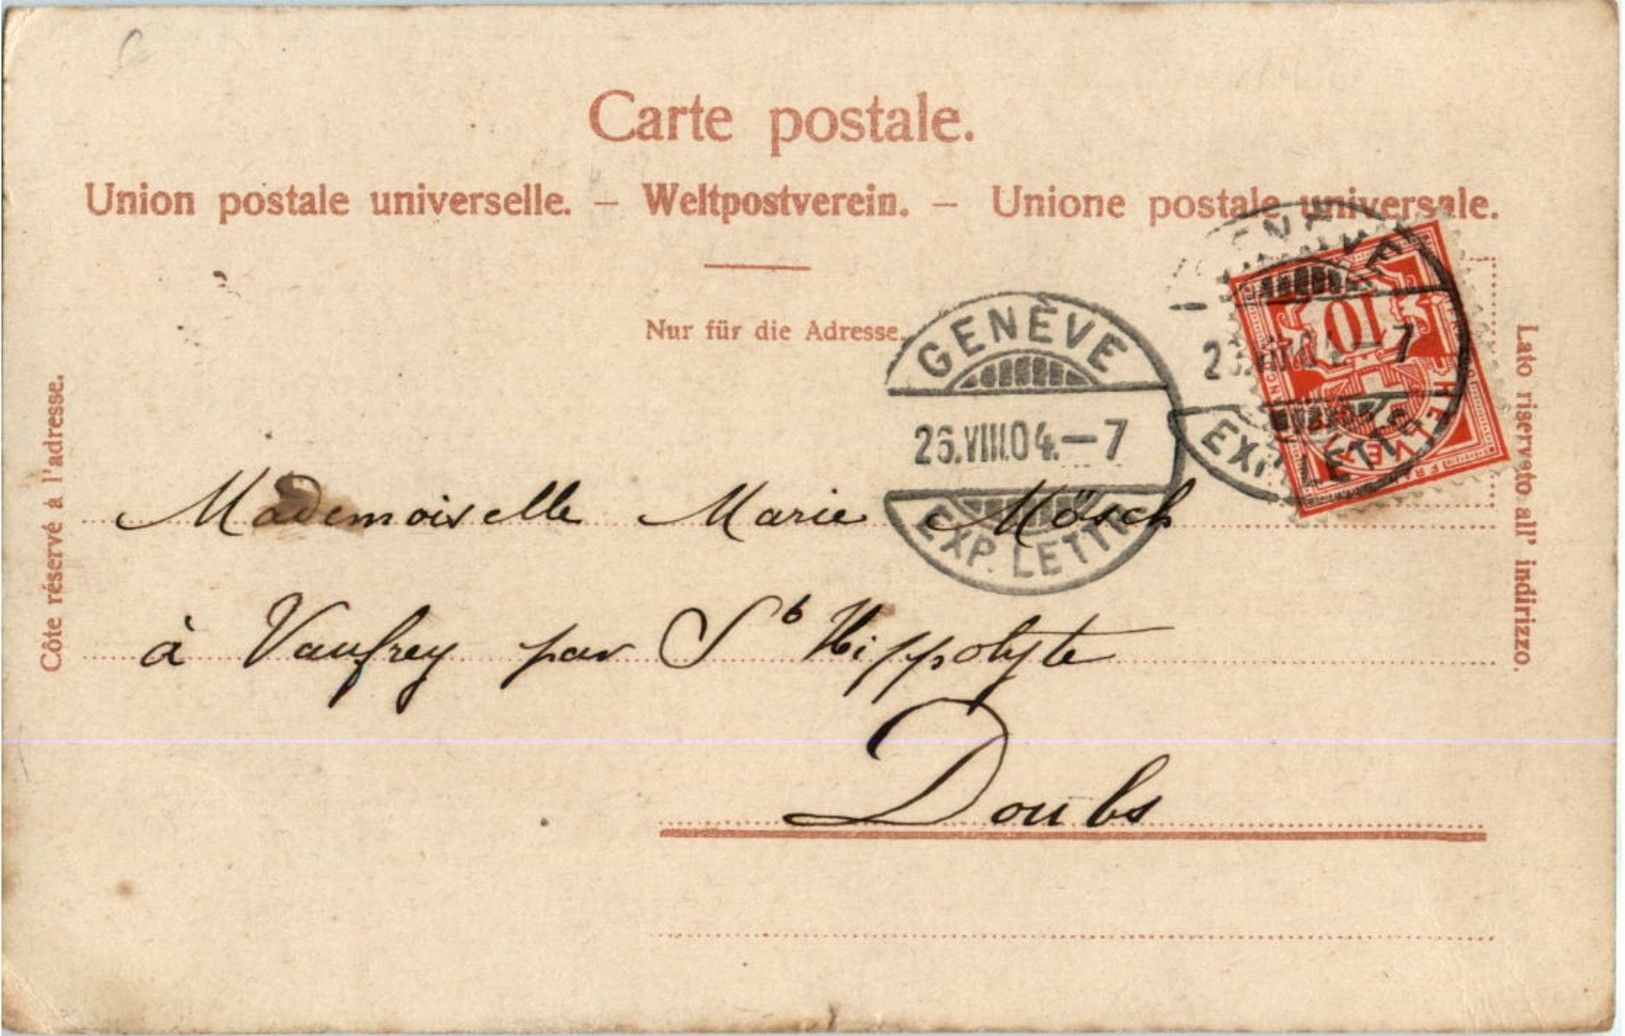 Carte postale.
Union postale universelle. – Weltpostverein. – Unione postale universale.
Nur für die Adresse.
Côte réservé à l'adresse.
Lato riservato all' indirizzo.
GENÈVE
26.VIII.04.–7
EXP. LETTR
GENÈVE
04.–7
EXP. LETTR
10
HELVETIA
FRANCO
Mademoiselle Marie Mösch
à Vaufrey par St Hippolyte
Doubs